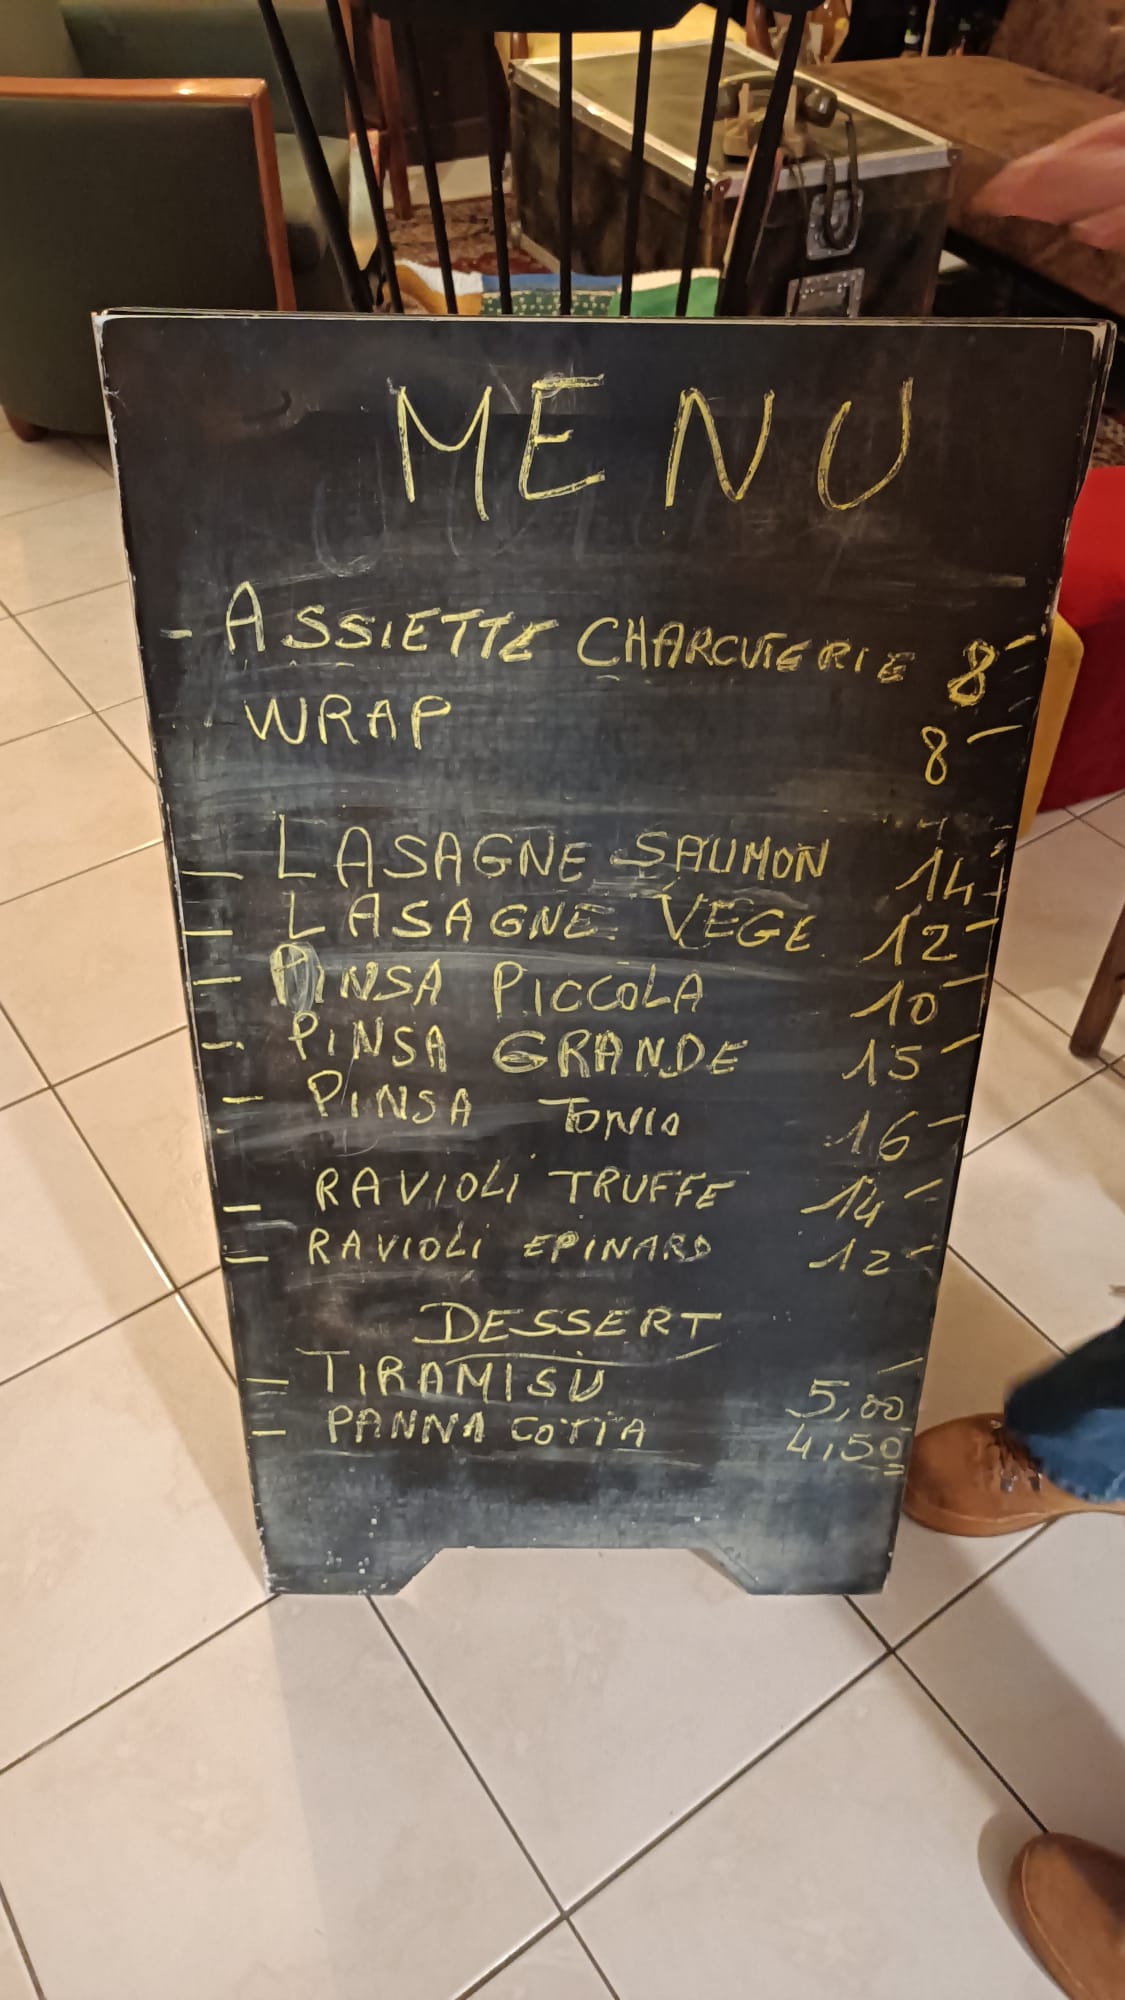 MENU
- ASSIETTE CHARCUTERIE 8-
WRAP 8-
- LASAGNE SAUMON 14-
- LASAGNE VEGE 12-
- PINSA PICCOLA 10-
- PINSA GRANDE 15-
- PINSA TONIO 16-
- RAVIOLI TRUFFE 14-
- RAVIOLI EPINARD 12-
DESSERT
- TIRAMISU 5,00
- PANNA COTTA 4,50